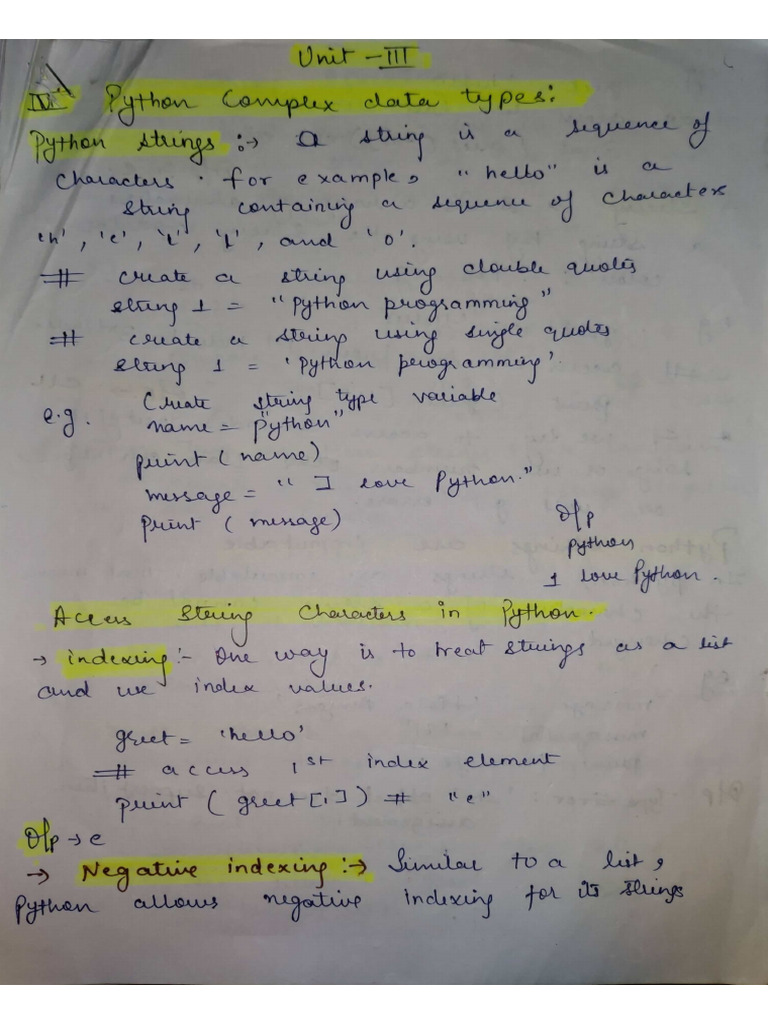 Unit - III
IV Python Complex data types:
Python strings :→ A string is a sequence of
characters. for example, "hello" is a
string containing a sequence of characters
'h', 'e', 'l', 'l', and 'o'.
# create a string using double quotes
string 1 = "python programming"
# create a string using single quotes
string 1 = 'python programming'.
e.g. Create string type variable
name = "Python"
print (name)
message = " I love Python."
print (message)
O/p
python
I love Python.
Access String Characters in Python.
→ indexing :- One way is to treat strings as a list
and use index values.
greet = 'hello'
# access 1st index element
print (greet[1]) # "e"
O/p → e
→ Negative indexing :→ Similar to a list,
Python allows negative indexing for its strings